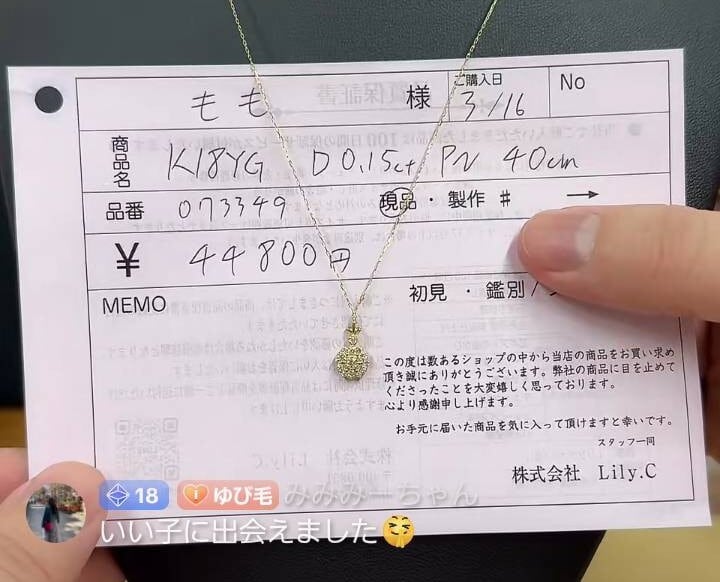 もも 様 ご購入日 3/16 No
商品名 K18YG D0.15ct PN 40cm
品番 073349 現品・製作 # →
¥ 44800円
MEMO 初見・鑑別/
この度は数あるショップの中から当店の商品をお買い求め
頂き誠にありがとうございます。弊社の商品に目を止めて
くださったことを大変嬉しく思っております。
心より感謝申し上げます。
お手元に届いた商品を気に入って頂けますと幸いです。
スタッフ一同
株式会社 Lily.C
18 ゆび毛 みみみーちゃん
いい子に出会えました🤭